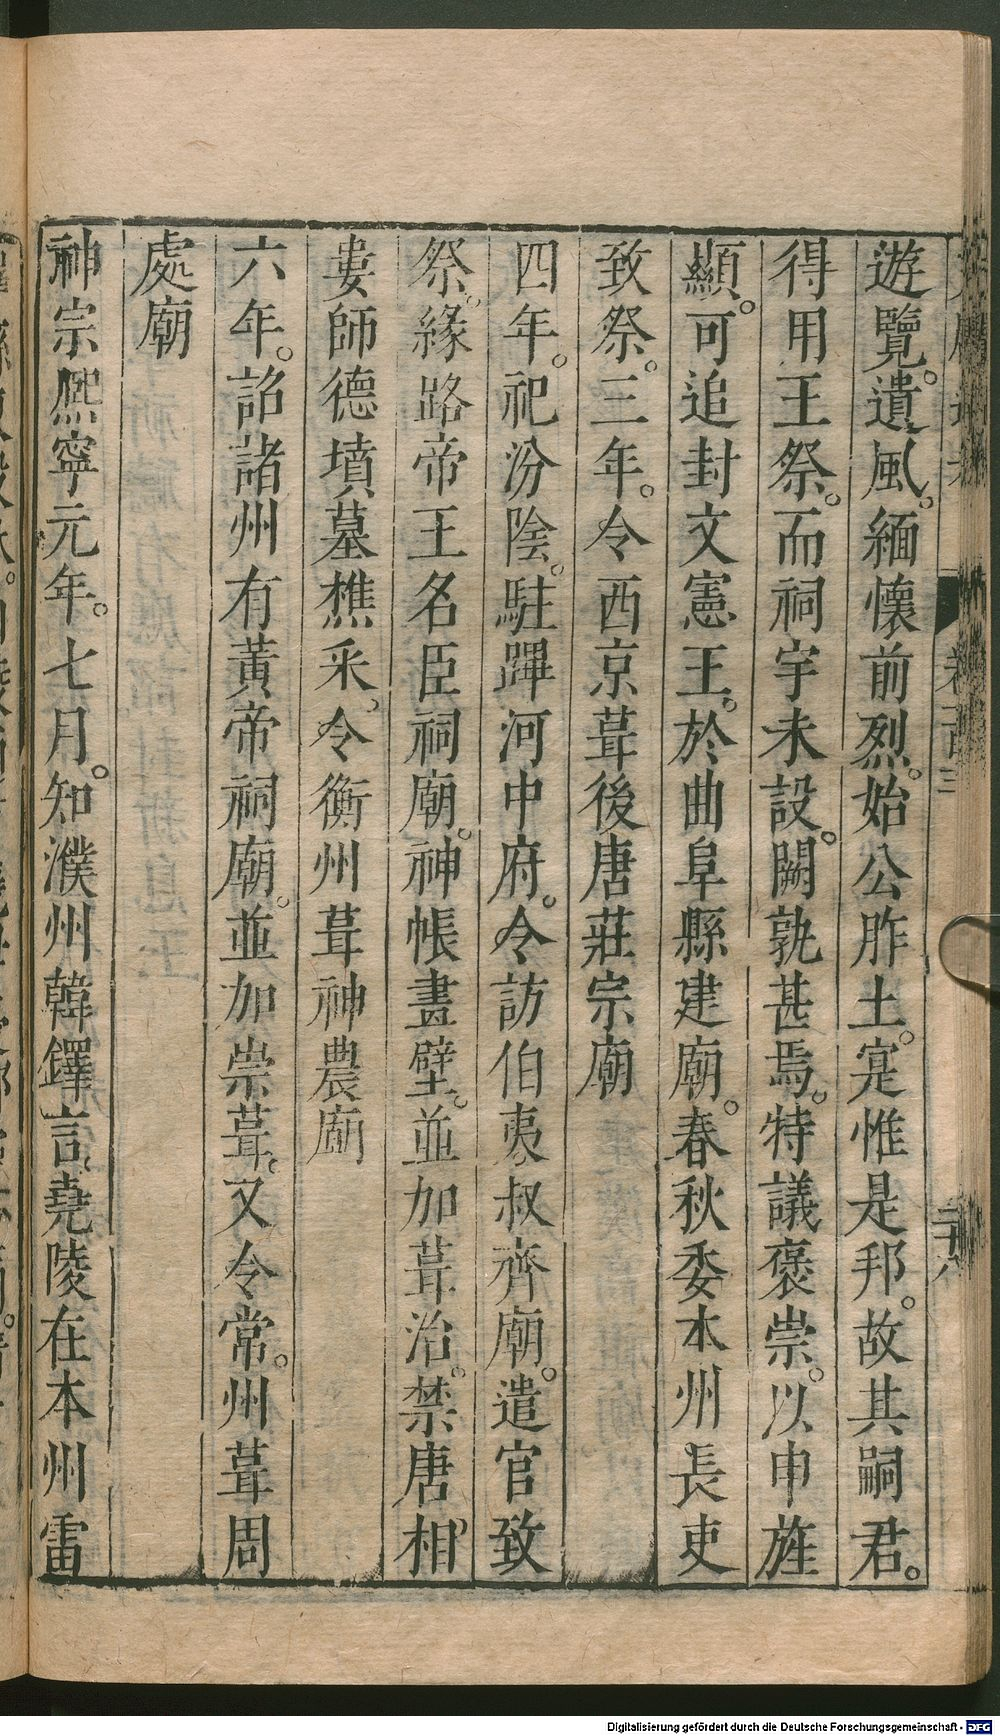 遊覽。遺風。緬懷前烈。始公胙土。寔惟是邦。故其嗣君。
得用王祭。而祠宇未設。闕孰甚焉。特議褒崇。以申旌
顯。可追封文憲王。於曲阜縣建廟。春秋委本州長吏
致祭。三年。令西京葺後唐莊宗廟
四年。祀汾陰。駐蹕河中府。令訪伯夷叔齊廟。遣官致
祭。緣路帝王名臣祠廟。神帳畫壁。並加葺治。禁唐相
婁師德墳墓樵采。令衡州葺神農廟
六年。詔諸州有黃帝祠廟。並加崇葺。又令常。州葺周
處廟
神宗熙寧元年。七月。知濮州韓鐸言。堯陵在本州雷
二十八
Digitalisierung gefördert durch die Deutsche Forschungsgemeinschaft - DFG